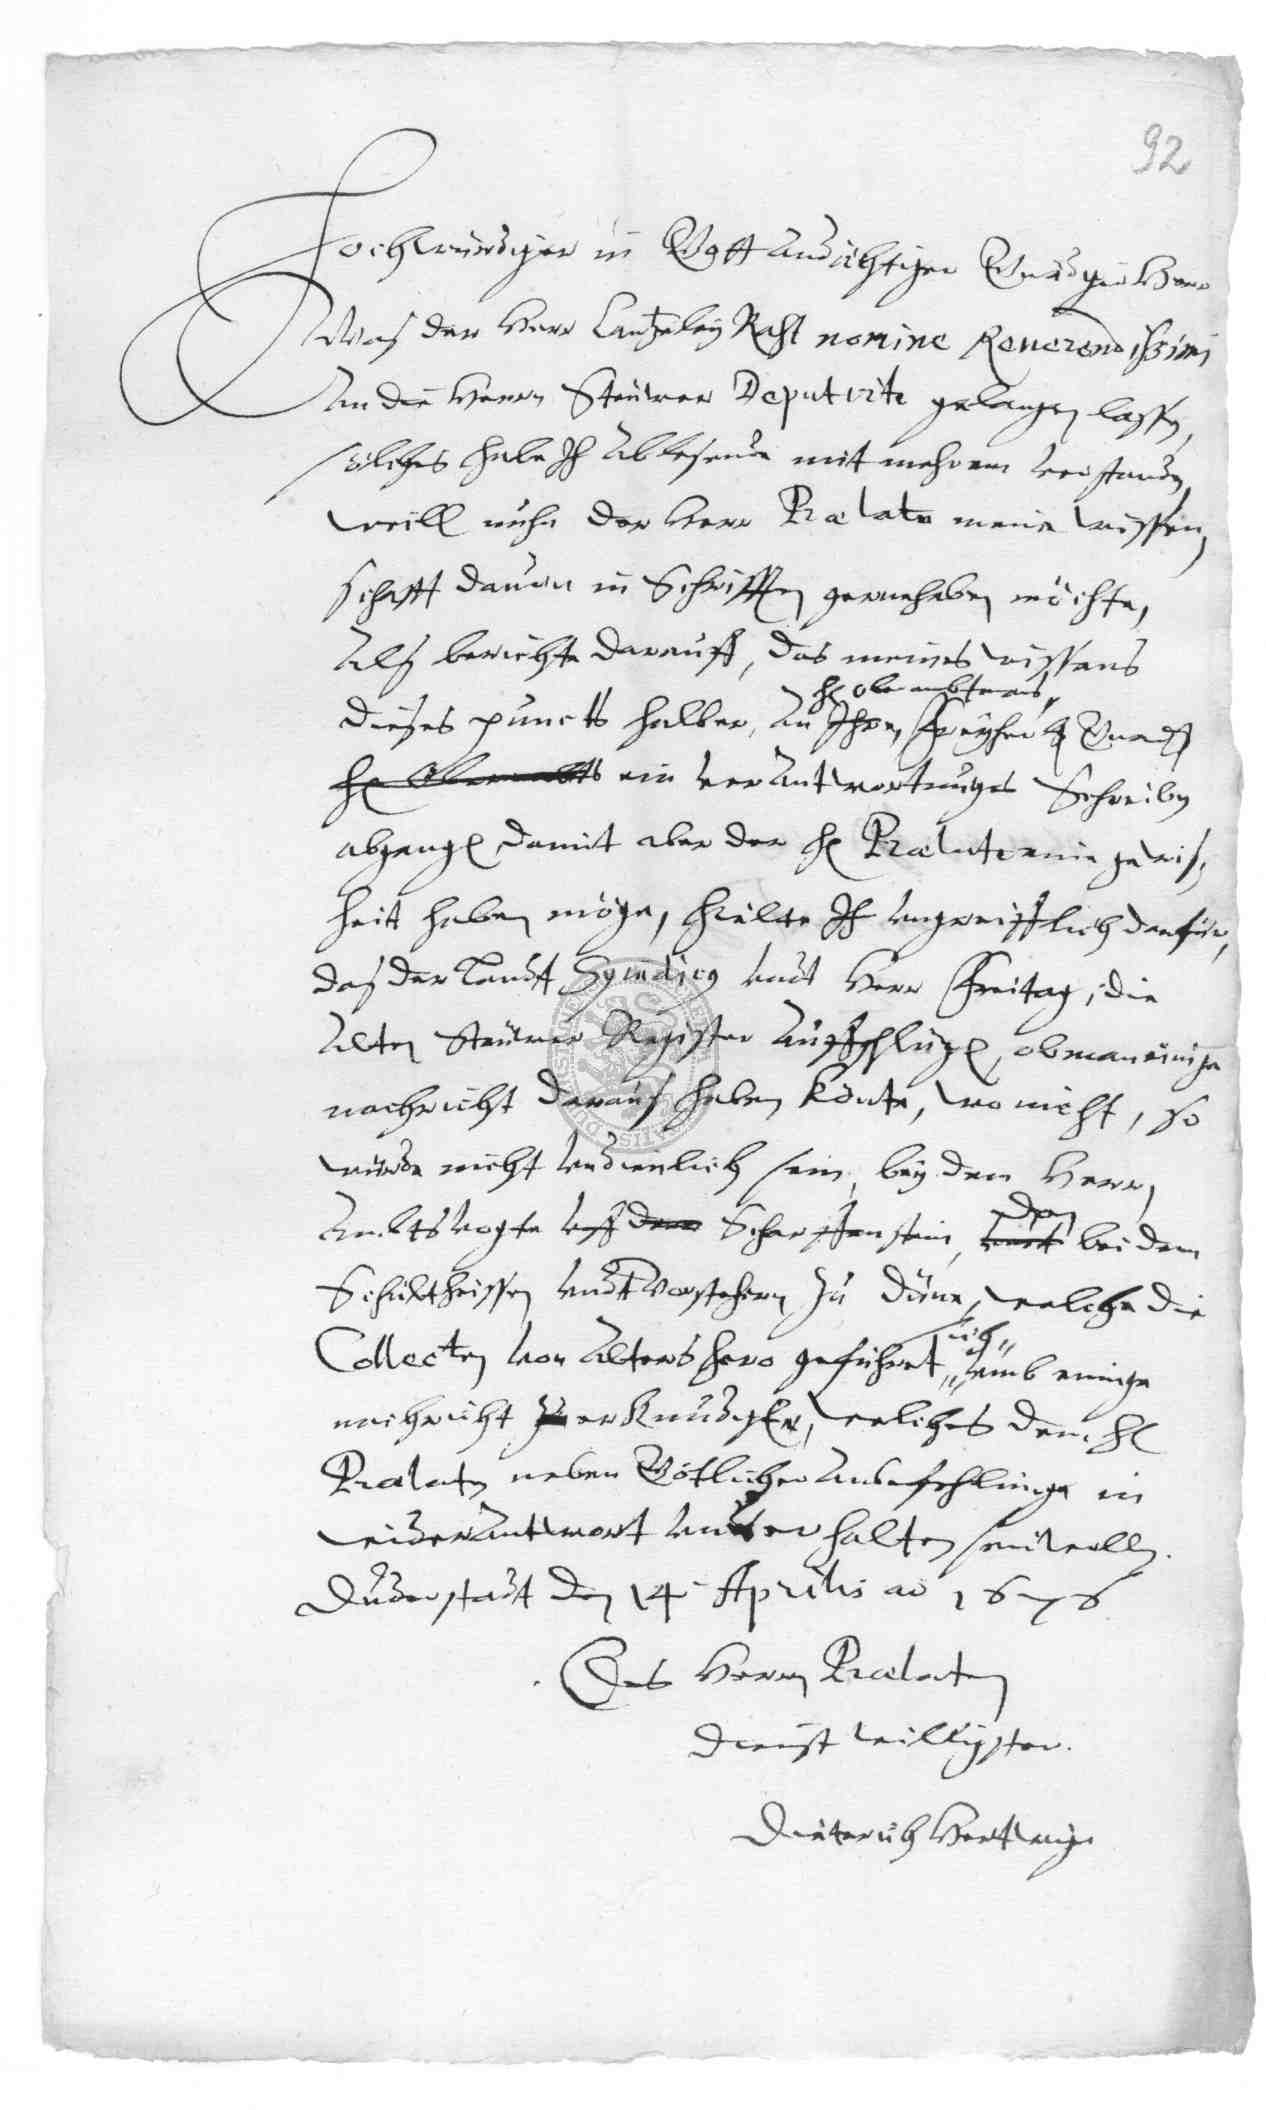 92
Hochwürdiger in Gott Andächtiger Gnädiger Herr
Was der Herr Cantzeley Raht nomine Reverendissimi
An die Herrn Steürer Deputirte gelangen lassen,
solches habe Ich Ablesende mit mehrem verstanden,
weill nuhn der Herr Prælate meine wissen,
schafft davon in Schrifften gerne haben möchte,
Alß berichte darauff, das meines wissens
H Oberambtmans
dieses puncts halber, An Ihre, Freyherl Gnad
H ein verAntwortunges Schreiben
abgangen damit aber der H Prælate eine gewiß,
heit haben möge, hielte Ich ungreifflich dafür,
daß der Landt Syndicus undt Herr Freitag, die
Alten Steürer Register Auffschlügen, ob man einige
nachricht darauß haben könte, wo nicht, so
würde nicht undienlich sein, bey dem Herrn
den
Ambtsvogte uff dem Scharffenstein, undt bei dem
Schultheissen undt Vorstehern zu Düna, welche die
sich
Collecten von Alters hero geführet, umb einige
nachricht zu erKundigen, welches dem H
Prælaten neben Götlicher Anbefehlunge in
wiederAntwort unter halten sein wollen.
Duderstadt den 14 Aprilis ao 1676
Des Herrn Prælaten
dienst willigster.
Dieterich Hertwig